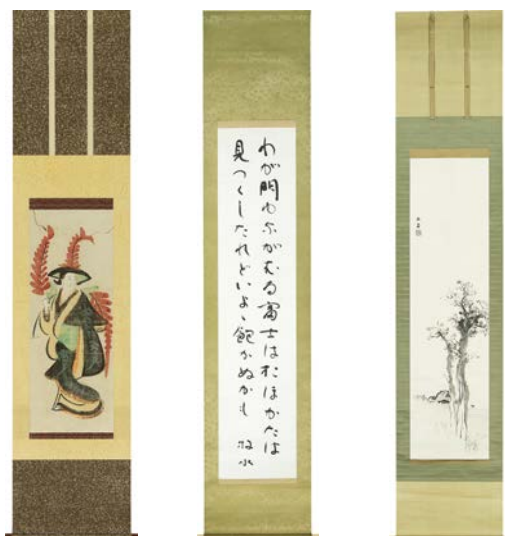 わが門ゆふがむる富士はおほかたは
見つくしたれどいよゝ飽かぬかも
牧水